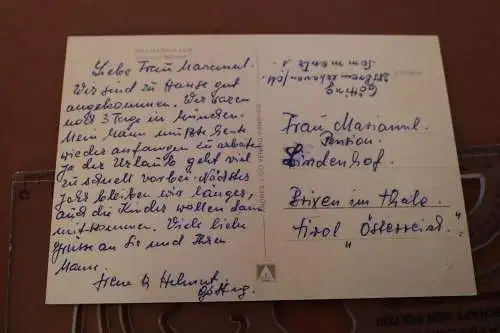 Liebe Frau Mariannel.
Wir sind zu Hause gut
angekommen. Wir waren
noch 3 Tage in München.
Mein Mann mußte heute
wieder anfangen zu arbeiten
ja der Urlaub geht viel
zu schnell vorbei. Nächstes
Jahr bleiben wir länger,
und die Kinder wollen dann
mitkommen. Viele liebe
Grüsse an Sie und Ihren
Mann.
Irene & Helmut
Götting.
Götting
Frau Mariannel.
Pension
Lindenhof.
Brixen im Thale.
Tirol "Österreich."